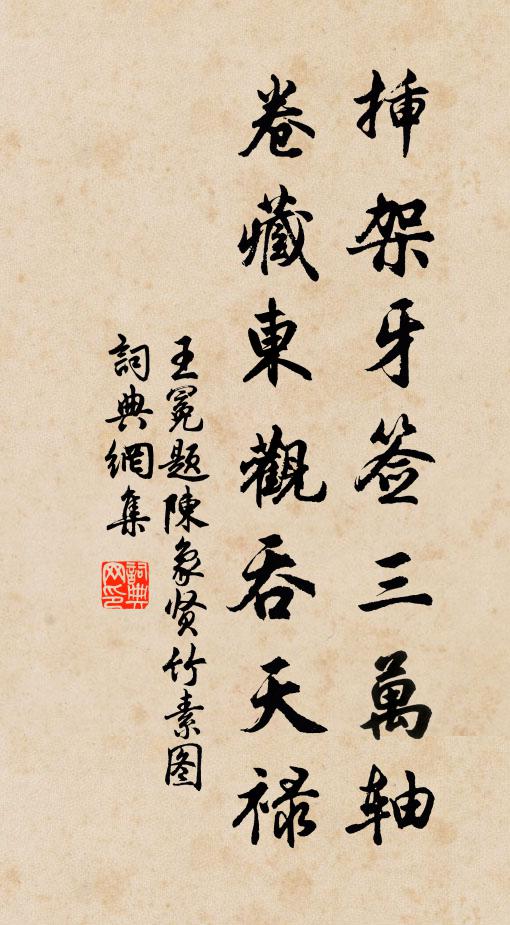 挿架牙签三萬軸
卷藏東觀吞天禄
王冕题陳象贤竹素图
詞典網集
詞典网印